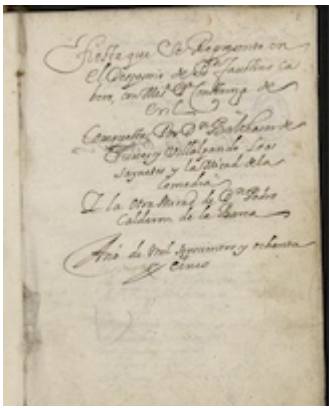 Fiesta que Se Represento en
el Desposorio de Dn Faustino Ca
bero, con Mla. Da
Eril
Compuesta Por Dn Balthasar de
Funes y Villalpando Loas
Saynetes y la Mitad de la
Comedia
I la Otra Mitad de Dn Pedro
Calderon de la Barca
Año de Mil Seiscientos y ochenta
y Cinco